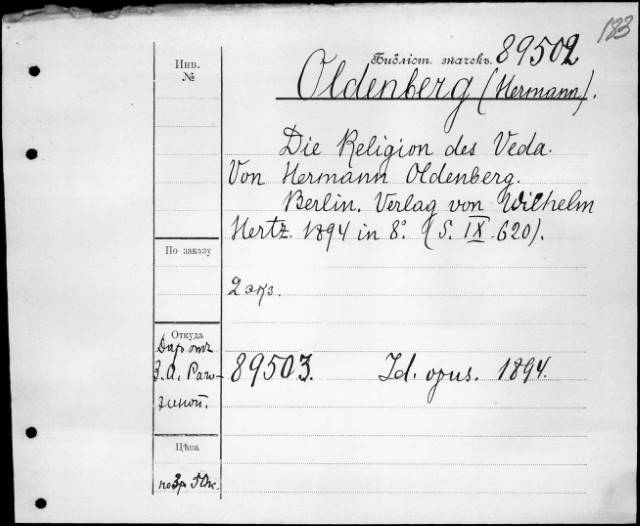 183
Инв.
№
Библіот. значекъ. 89502
Oldenberg (Hermann).
Die Religion des Veda.
Von Hermann Oldenberg.
Berlin. Verlag von Wilhelm
Hertz. 1894 in 8°. (S. IX. 620).
По заказу
2 экз.
Откуда
Даръ отъ
З. А. Раго-
зиной.
89503. Id. opus. 1894.
Цѣна
по 3р